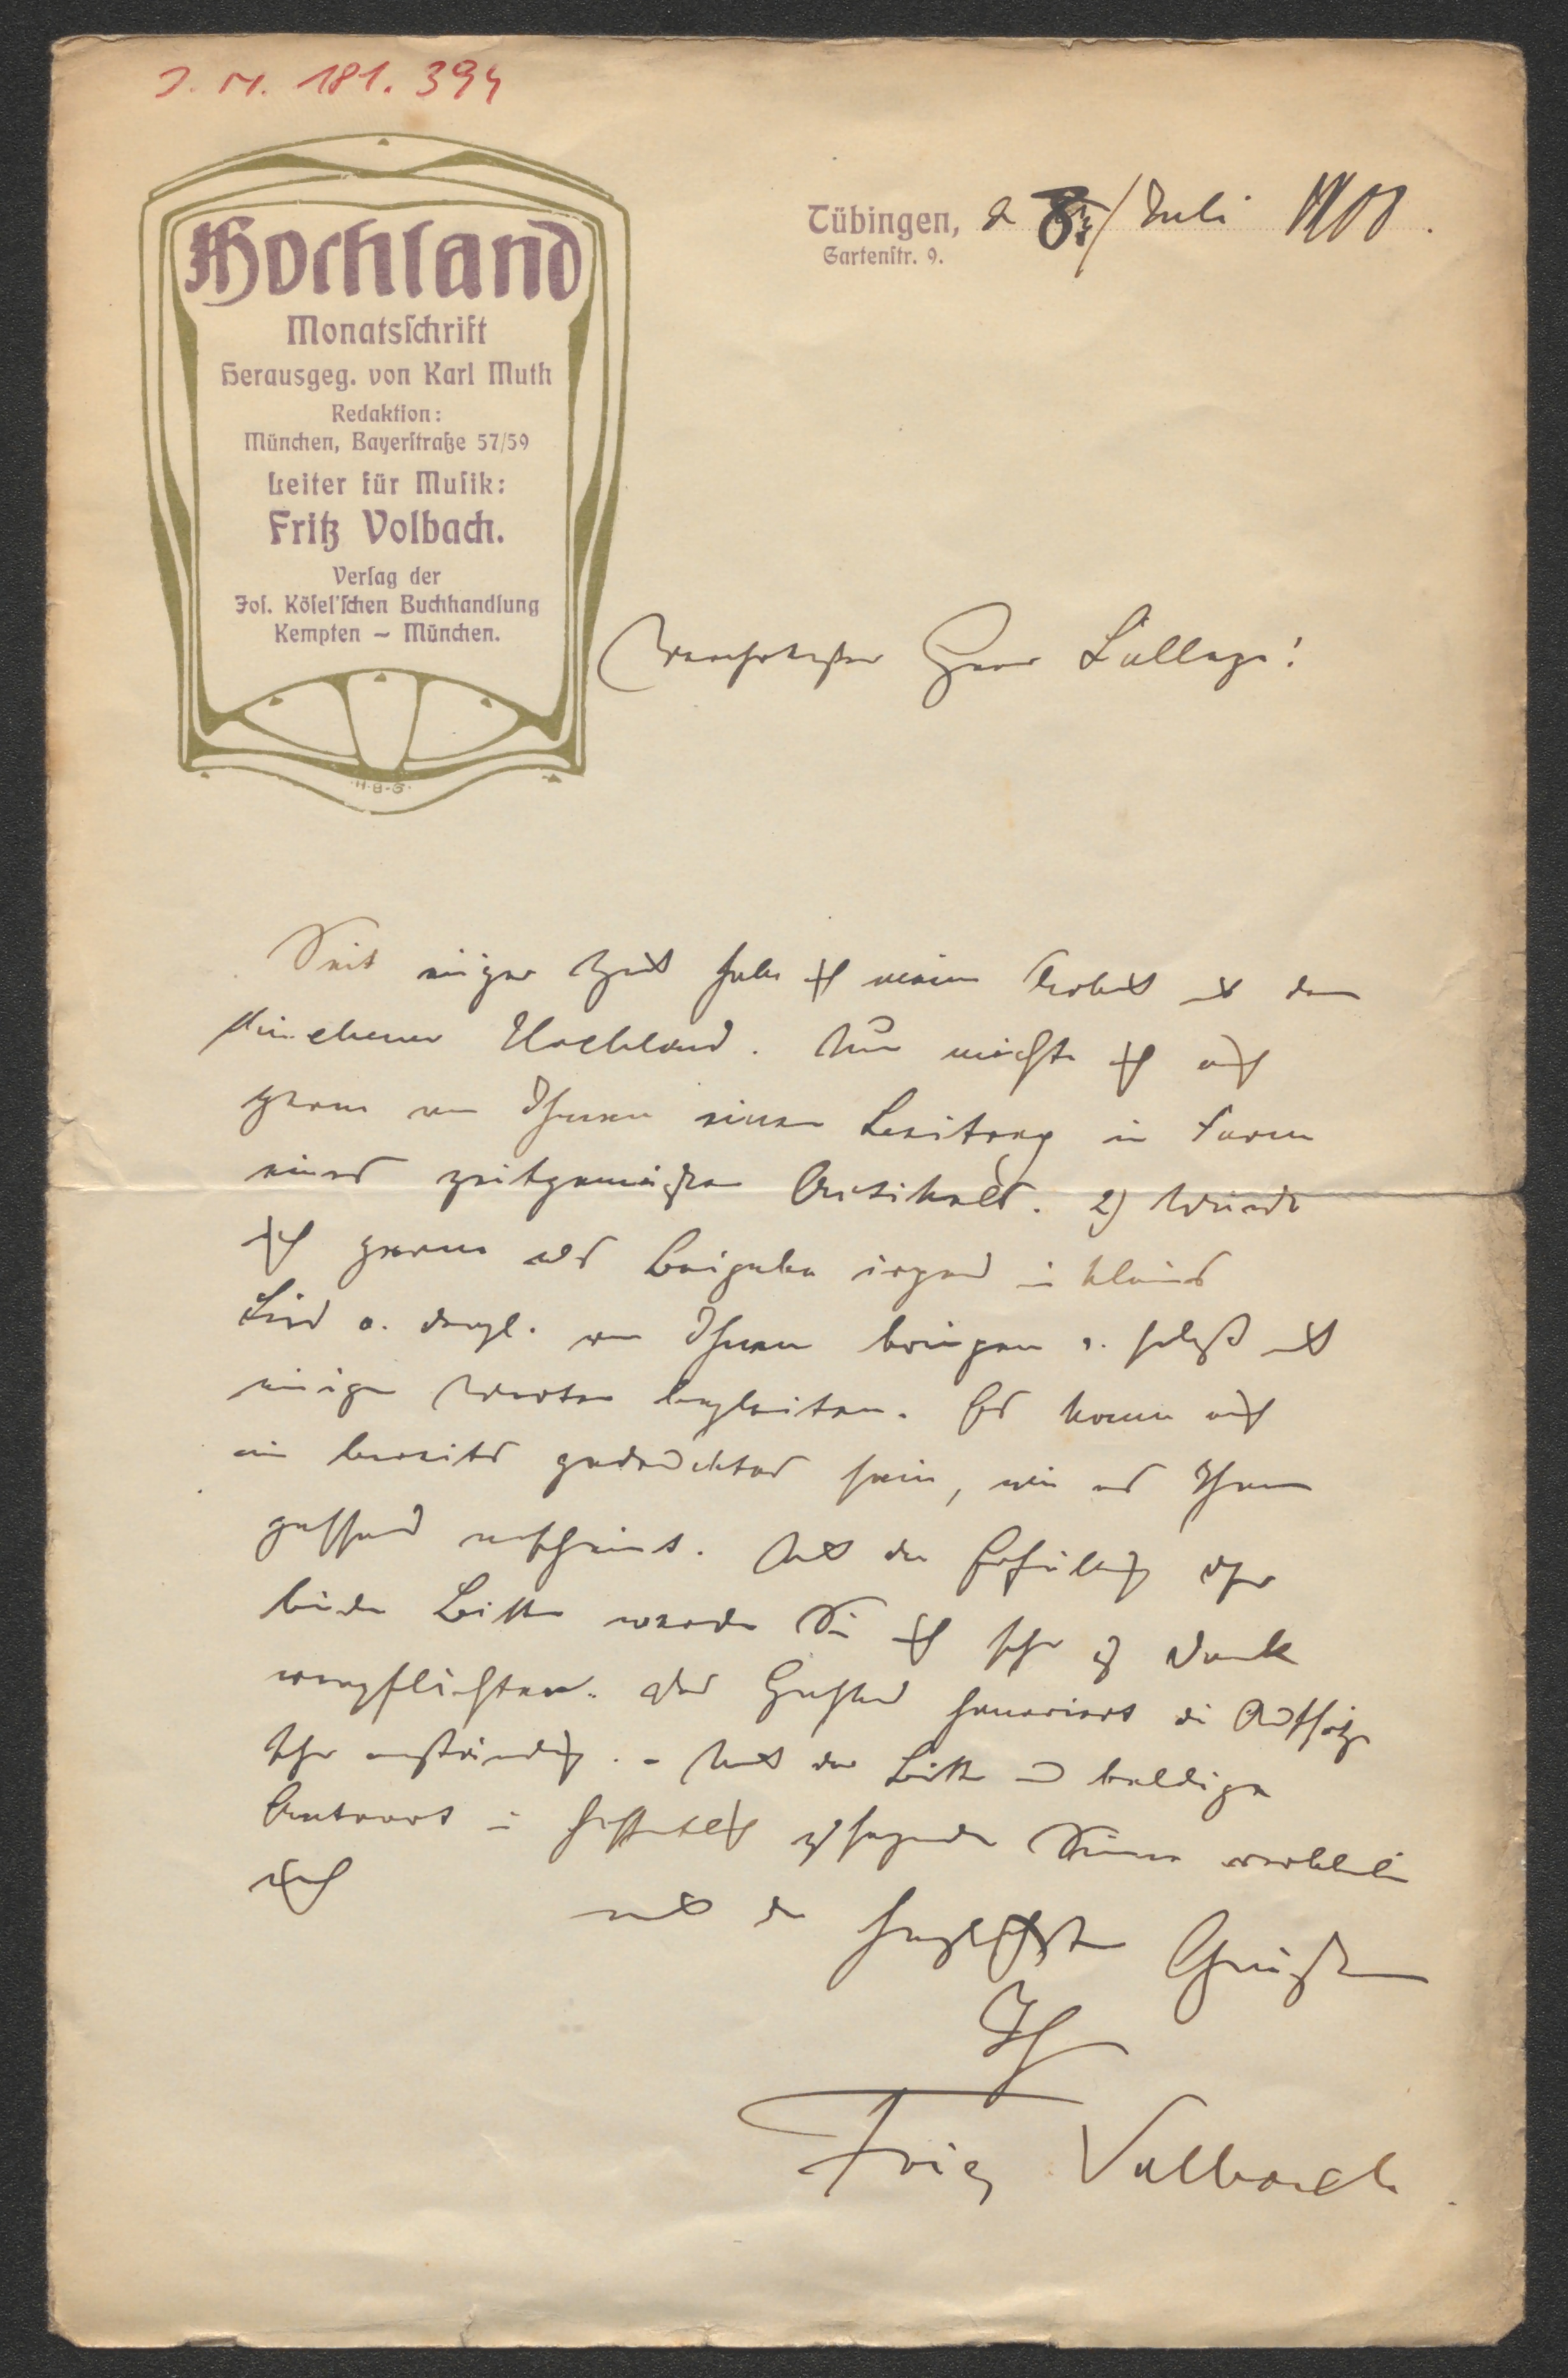 I. N. 181.394
Hochland
Monatsschrift
Herausgeg. von Karl Muth
Redaktion:
München, Bayerstraße 57/59
Leiter für Musik:
Fritz Volbach.
Verlag der
Jos. Kösel'schen Buchhandlung
Kempten – München.
H·B·G·
Tübingen, d 8/ Juli 1908.
Gartenstr. 9.
Verehrtester Herr College!
Seit einiger Zeit habe ich meine Arbeit mit dem
Münchener Hochland. Nun möchte ich auch
gerne von Ihnen einen Beitrag in Form
eines zeitgemäßen Artikels. 2) Würde
ich gerne als Beigabe irgend ein kleines
Lied o. dergl. von Ihnen bringen u. selbst mit
einigen Worten begleiten. Es kann auch
ein bereits gedrucktes sein, wie es Ihnen
passend erscheint. Mit der Erfüllung dieser
beiden Bitten werden Sie mich sehr zu Dank
verpflichten. Das Hochland honoriert die Aufsätze
sehr anständig. – Mit der Bitte um baldige
Antwort in hoffentlich zusagendem Sinne verbleibe
ich
mit den herzlichsten Grüßen
Ihr
Fritz Volbach.